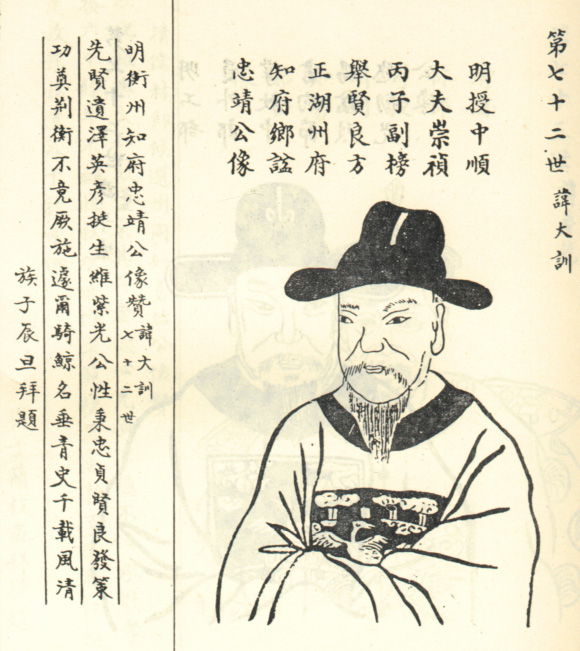 第七十二世 諱大訓
明授中順
大夫崇禎
丙子副榜
舉賢良方
正湖州府
知府鄉諡
忠靖公像
明衡州知府忠靖公像贊 諱大訓 七十二世
先賢遺澤英彥挺生維紫光公性秉忠貞賢良發策
功奠荆衡不竟厥施遽爾騎鯨名垂青史千載風清
族子辰旦拜題